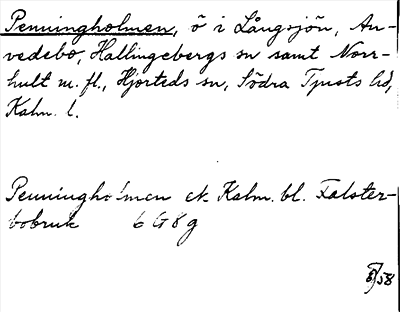 Penningholmen, ö i Långsjön, An-
vedebo, Hallingebergs sn samt Norr-
hult m. fl., Hjorteds sn, Södra Tjusts hd,
Kalm. l.
Penningholmen ek Kalm. bl. Falster-
bobruk 6 G 8 g
58